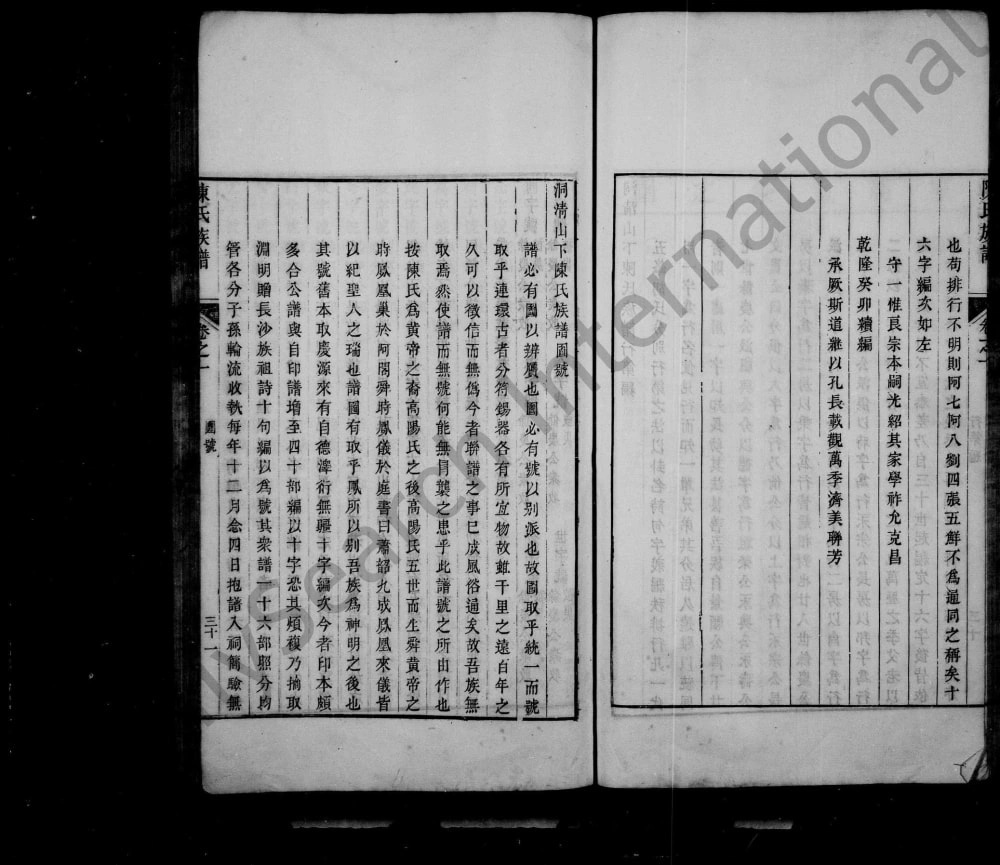 陳氏族譜
卷之一
也苟排行不明則阿七阿八劉四張五鮮不爲通同之稱矣十
六字編次如左
二 守一惟艮宗本嗣光紹其家學祚允克昌
乾隆癸卯續編
承厥斯道維以孔長載觀萬季濟美聯芳
洞清山下陳氏族譜圖號
譜必有圖以辨贋也圖必有號以別派也故圖取乎統一而號
取乎連環古者分符錫器各有所宜物故雖千里之遠百年之
久可以徵信而無僞今者聯譜之事已成風俗通矣故吾族無
取焉然使譜而無號何能無冒襲之患乎此譜號之所由作也
按陳氏爲黄帝之裔高陽氏之後高陽氏五世而生舜黄帝之
時鳳凰巢於阿閣舜時鳳儀於庭書曰簫韶九成鳳凰來儀皆
以紀聖人之瑞也譜圖有取乎鳳所以别吾族爲神明之後也
其號舊本取慶源來有自德澤衍無疆十字編次今者印本頗
多合公譜與自印譜增至四十部編以十字恐其煩複乃摘取
淵明贈長沙族祖詩十句編以爲號其衆譜一十六部照分均
管各分子孫輪流收執每年十二月念四日抱譜入祠簡驗無
陳氏族譜
卷之一
圖號
三十一
MSearch International